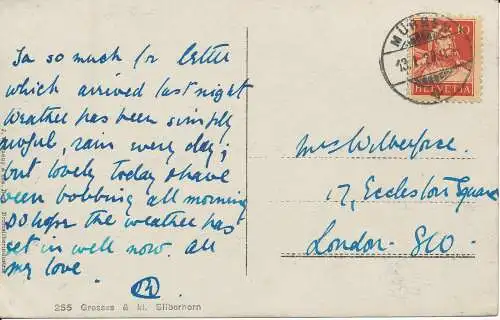 Ta so much for letter
which arrived last night
Weather has been simply
awful, rain every day;
but lovely today & have
been bobbing all morning
so hope the weather has
set in well now. All
my love
255 Grosses & kl. Silberhorn
MÜRREN
13.
10
HELVETIA
Mrs Wilberforce.
17, Eccleston Square
London. SW